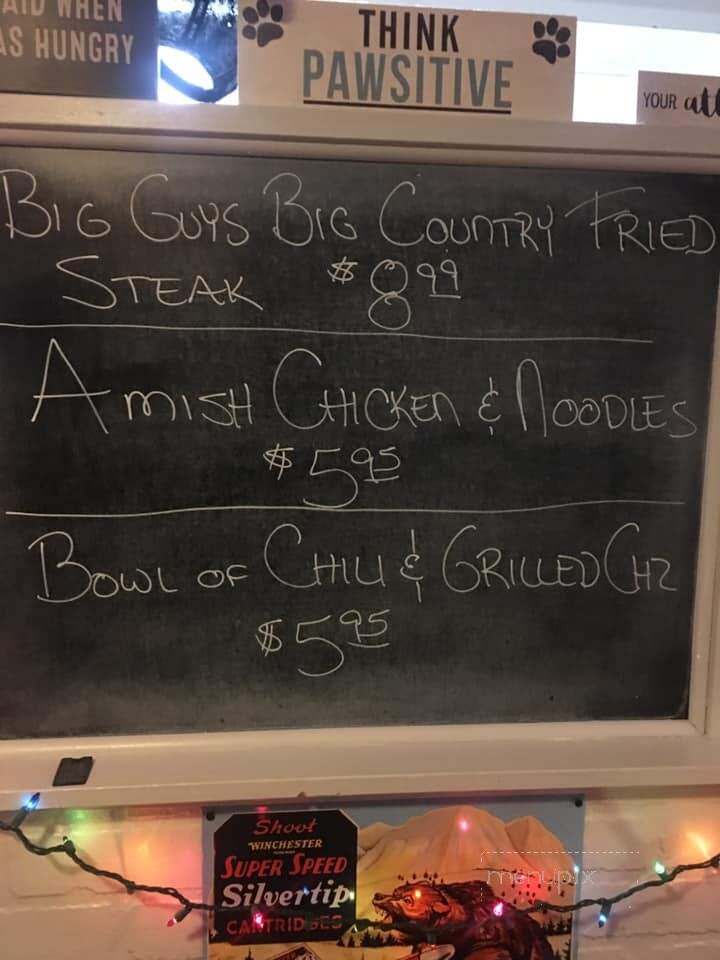 AID WHEN
AS HUNGRY
THINK
PAWSITIVE
YOUR
BIG GUYS BIG COUNTRY FRIED
STEAK $8.99
AMISH CHICKEN & NOODLES
$5.95
BOWL OF CHILI & GRILLED CHZ
$5.95
Shoot
WINCHESTER
SUPER SPEED
Silvertip
CARTRIDGES
menupix